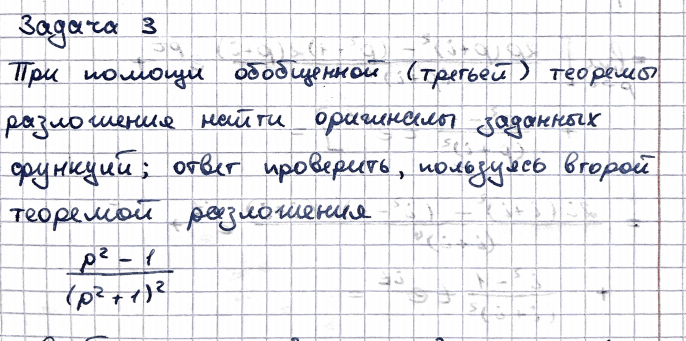 Задача 3
При помощи обобщенной (третьей) теоремы
разложения найти оригиналы заданных
функций; ответ проверить, пользуясь второй
теоремой разложения
p² - 1
(p² + 1)²